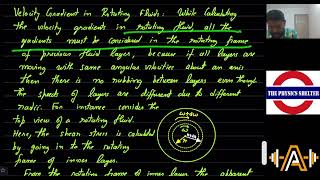 Velocity Gradient in Rotating Fluids: While Calculating
the velocity gradients in rotating fluid, all the
gradients must be considered in the rotating frame
of previous fluid layers, because if all layers are
moving with same angular velocities about an axis
then there is no rubbing between layers even though
the speeds of layers are different due to different
radii. For instance consider the
top view of a rotating fluid.
Here, the shear stress is calculated
by going in to the rotating
frame of inner layers.
From the rotating frame of inner layer the apparent
ω+dω
ω
THE PHYSICS SHELTER
A